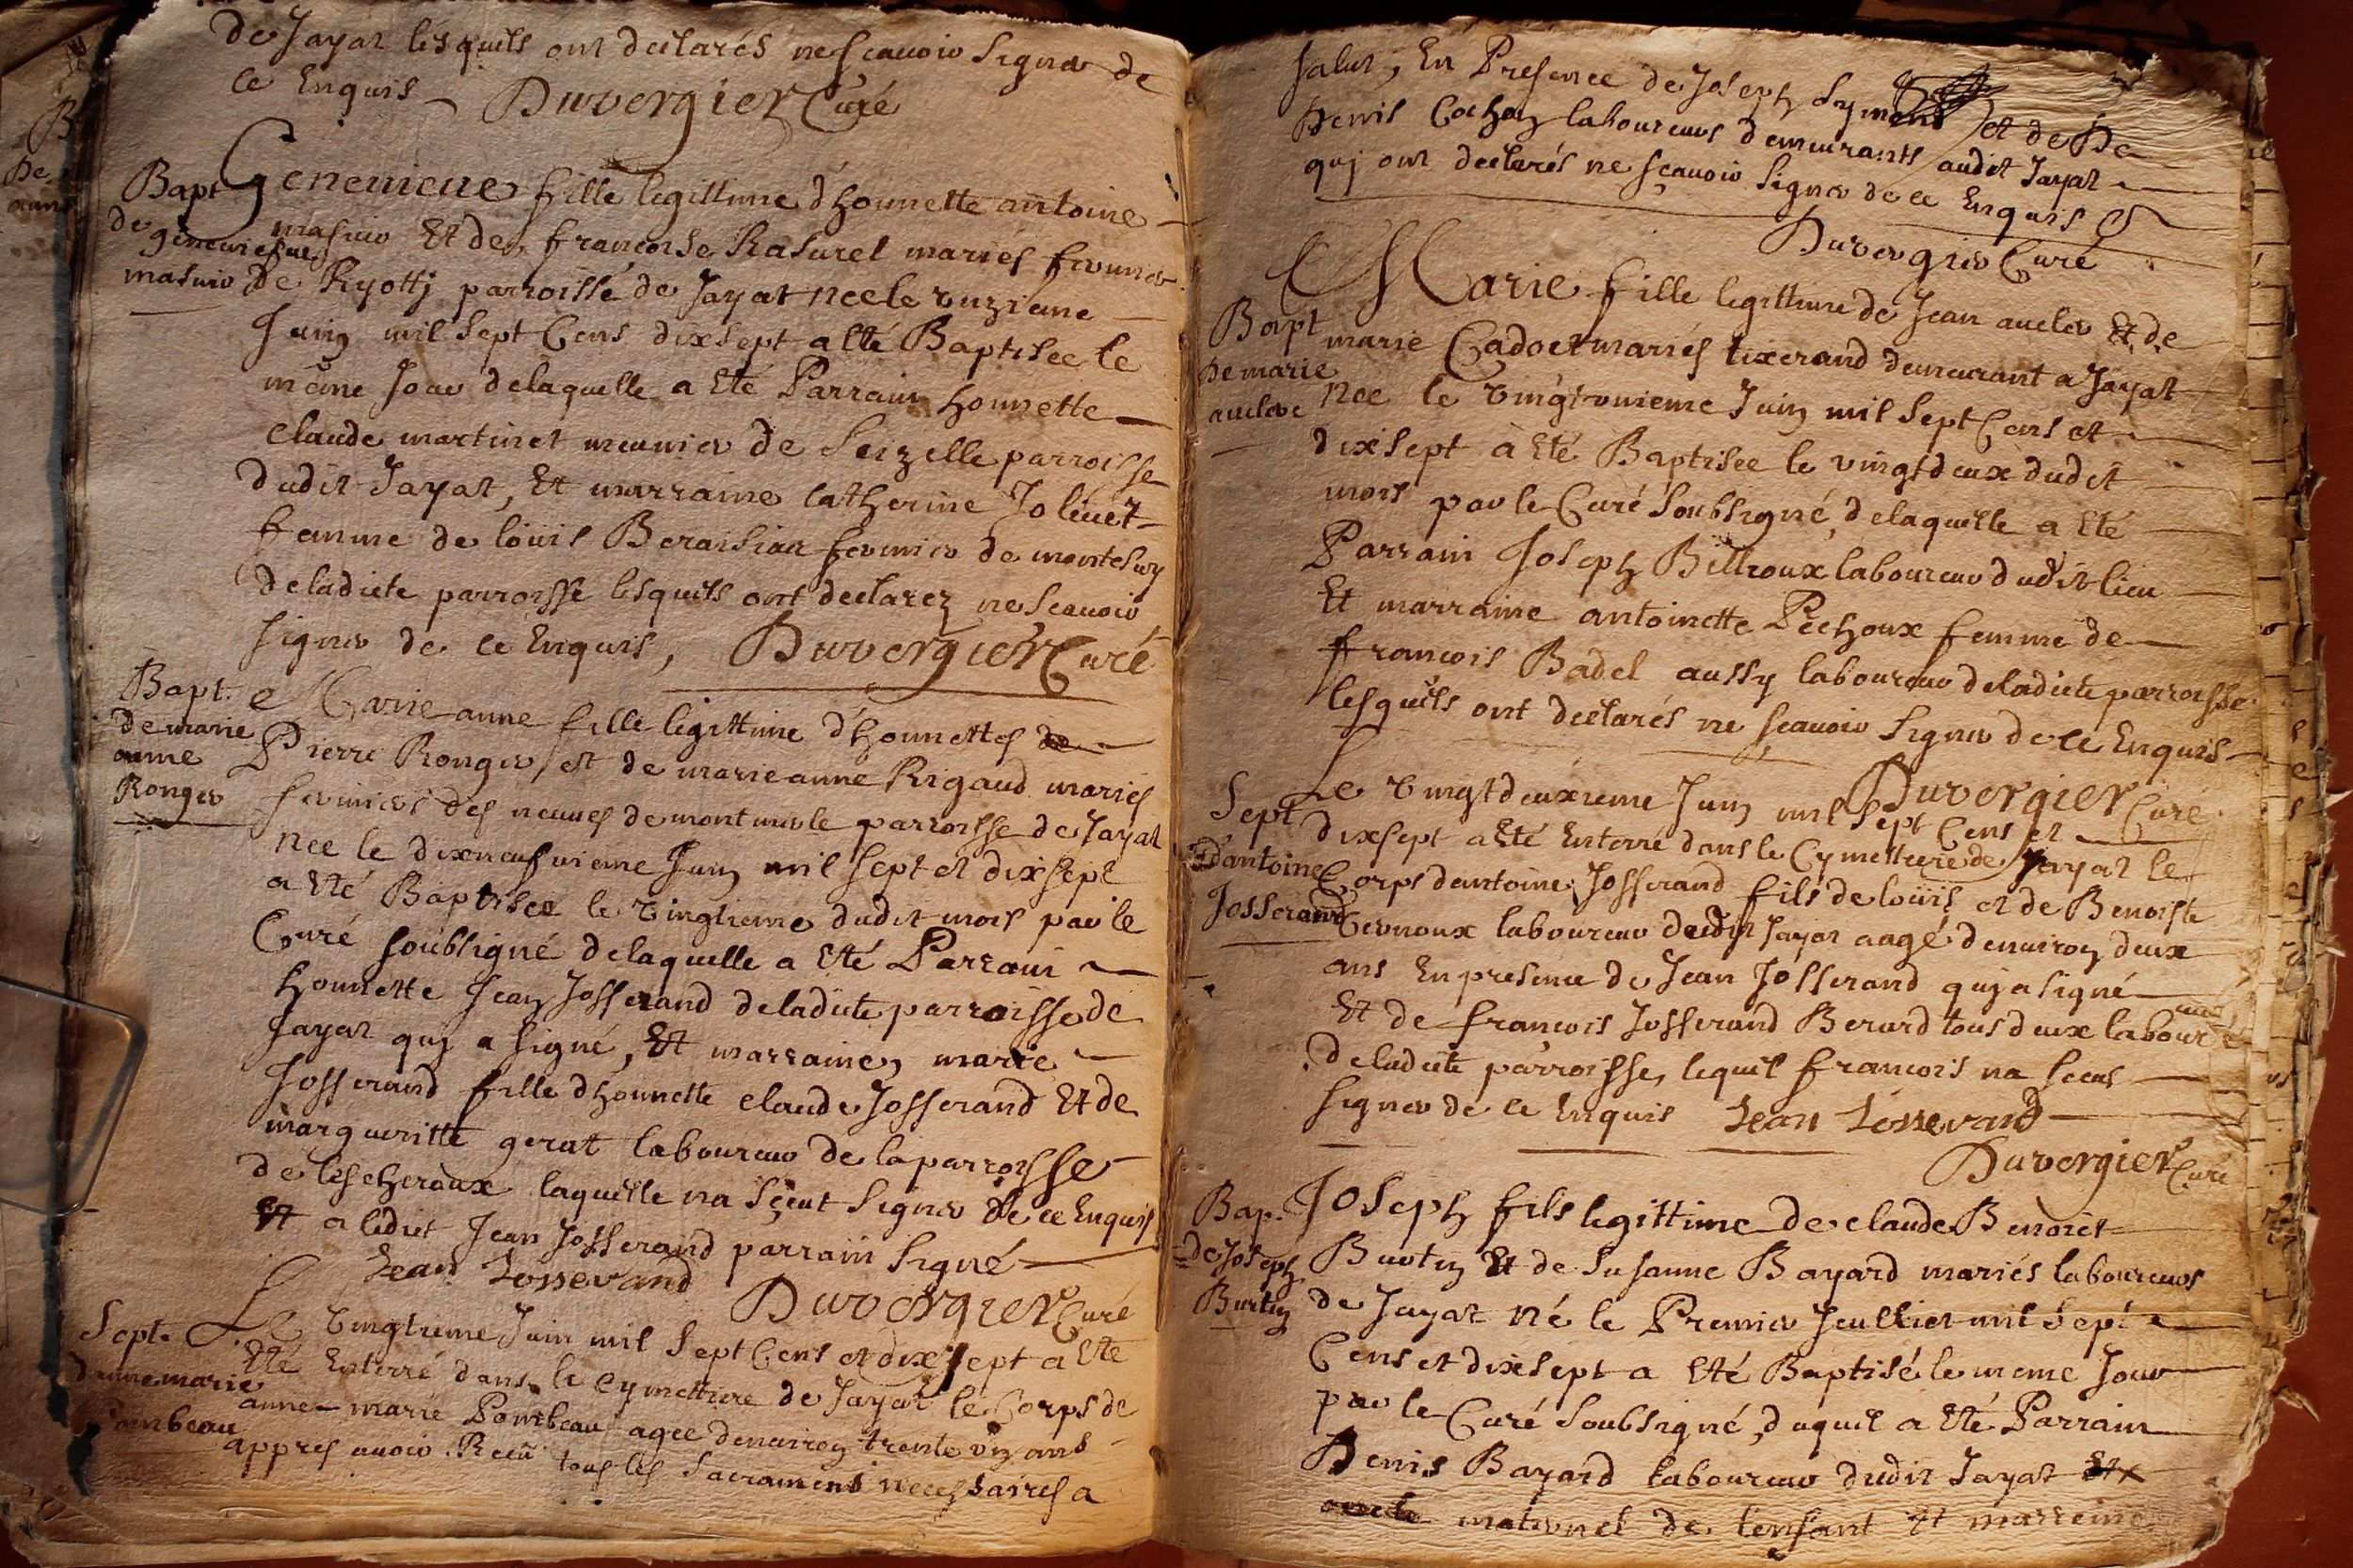 de Jayat lesquels ont declarés ne scauoir signer de
ce Enquis Duvergier Curé
Bapt
de geneuiefue
masuir
Geneuieue fille legittime d'honnette antoine
masuir Et de francoise Rasurel mariés fermier
de Ryottj parroisse de Jayat nee le unzieme
Juin mil sept Cens dixsept a Eté Baptisée le
même Jour delaquelle a Eté Parrain honnette
claude martinet meunier de Seizelle parroisse
dudit Jayat, Et marraine catherine Joliuet
femme de loüis Beraisiat fermier de montesuy
deladicte parroisse lesquels ont declarez ne scauoir
signer de ce Enquis, Duvergier Curé
Bapt.
de marie
anne
Ronger
Marie anne fille legittime d'honnettes
Pierre Ronger et de marie anne Rigaud mariés
fermiers des neuues de montmerle parroisse de Jayat
nee le dixneufuieme Juin mil sept et dixsept
a Eté Baptisee le vingtieme dudit mois par le
Curé soubsigné delaquelle a Eté Parrain
honnette Jean Josserand deladicte parroisse de
Jayat quj a signé, Et marraine, marie
Josserand fille d'honnette claude Josserand Et de
margueritte gerut laboureur de la parroisse
de lescheroux laquelle na sçeut signer de ce Enquis
Et a ledict Jean Josserand parrain signé
Jean Josserand Duvergier Curé
Sept.
danne marie
Pombeau
Le vingtieme Juin mil sept Cens et dixsept a Eté
Eté Enterré dans le cymettiere de Jayat le Corps de
anne-marie Pombeau agee denuiron trente vn ans
appres auoir Receü tous les sacramens necessaires a
salut, En Presence de Joseph Symens et de De
Denis Cochon laboureurs demeurants audit Jayat
quj ont declarés ne sçauoir signer de ce Enquis
Duvergier Curé
Bapt
de marie
auclerc
Marie fille legittime de Jean aucler Et de
marie Cadoet mariés tixerand demeurant a Jayat
nee le vingtvnieme Juin mil sept Cens et
dixsept à Eté Baptisée le vingtdeux dudit
mois par le Curé soubsigné, delaquelle a Eté
Parrain Joseph Billioux laboureur dudit lieu
Et marraine antoinette Pechoux femme de
francois Badel aussy laboureur deladicte parroisse
lesquels ont declarés ne sçauoir signer de ce Enquis
Duvergier Curé
Sept
d'antoine
Josserand
Le vingtdeuxieme Juin mil sept Cens et
dixsept a Eté Enterré dans le Cymettiere de Jayat le
Corps dantoine Josserand fils de loüis et de Benoiste
Cernoux laboureur dudit Jayat aagé denuiron deux
ans En presence de Jean Josserand quj a signé
Et de francois Josserand Berard tous deux laboureurs
deladicte parroisse, lequel francois na sceus
signer de ce Enquis Jean Josserand
Duvergier Curé
Bap.
de Joseph
Burtin
Joseph fils legittime de claude Benoict
Burtin Et de Susanne Bayard mariés laboureurs
de Jayat né le Premier Jeulliet mil sept
Cens et dixsept a Eté Baptisé le meme Jour
par le Curé soubsigné, duquel a Eté Parrain
Denis Bayard laboureur dudit Jayat
oncle maternel de l'enfant et marreine